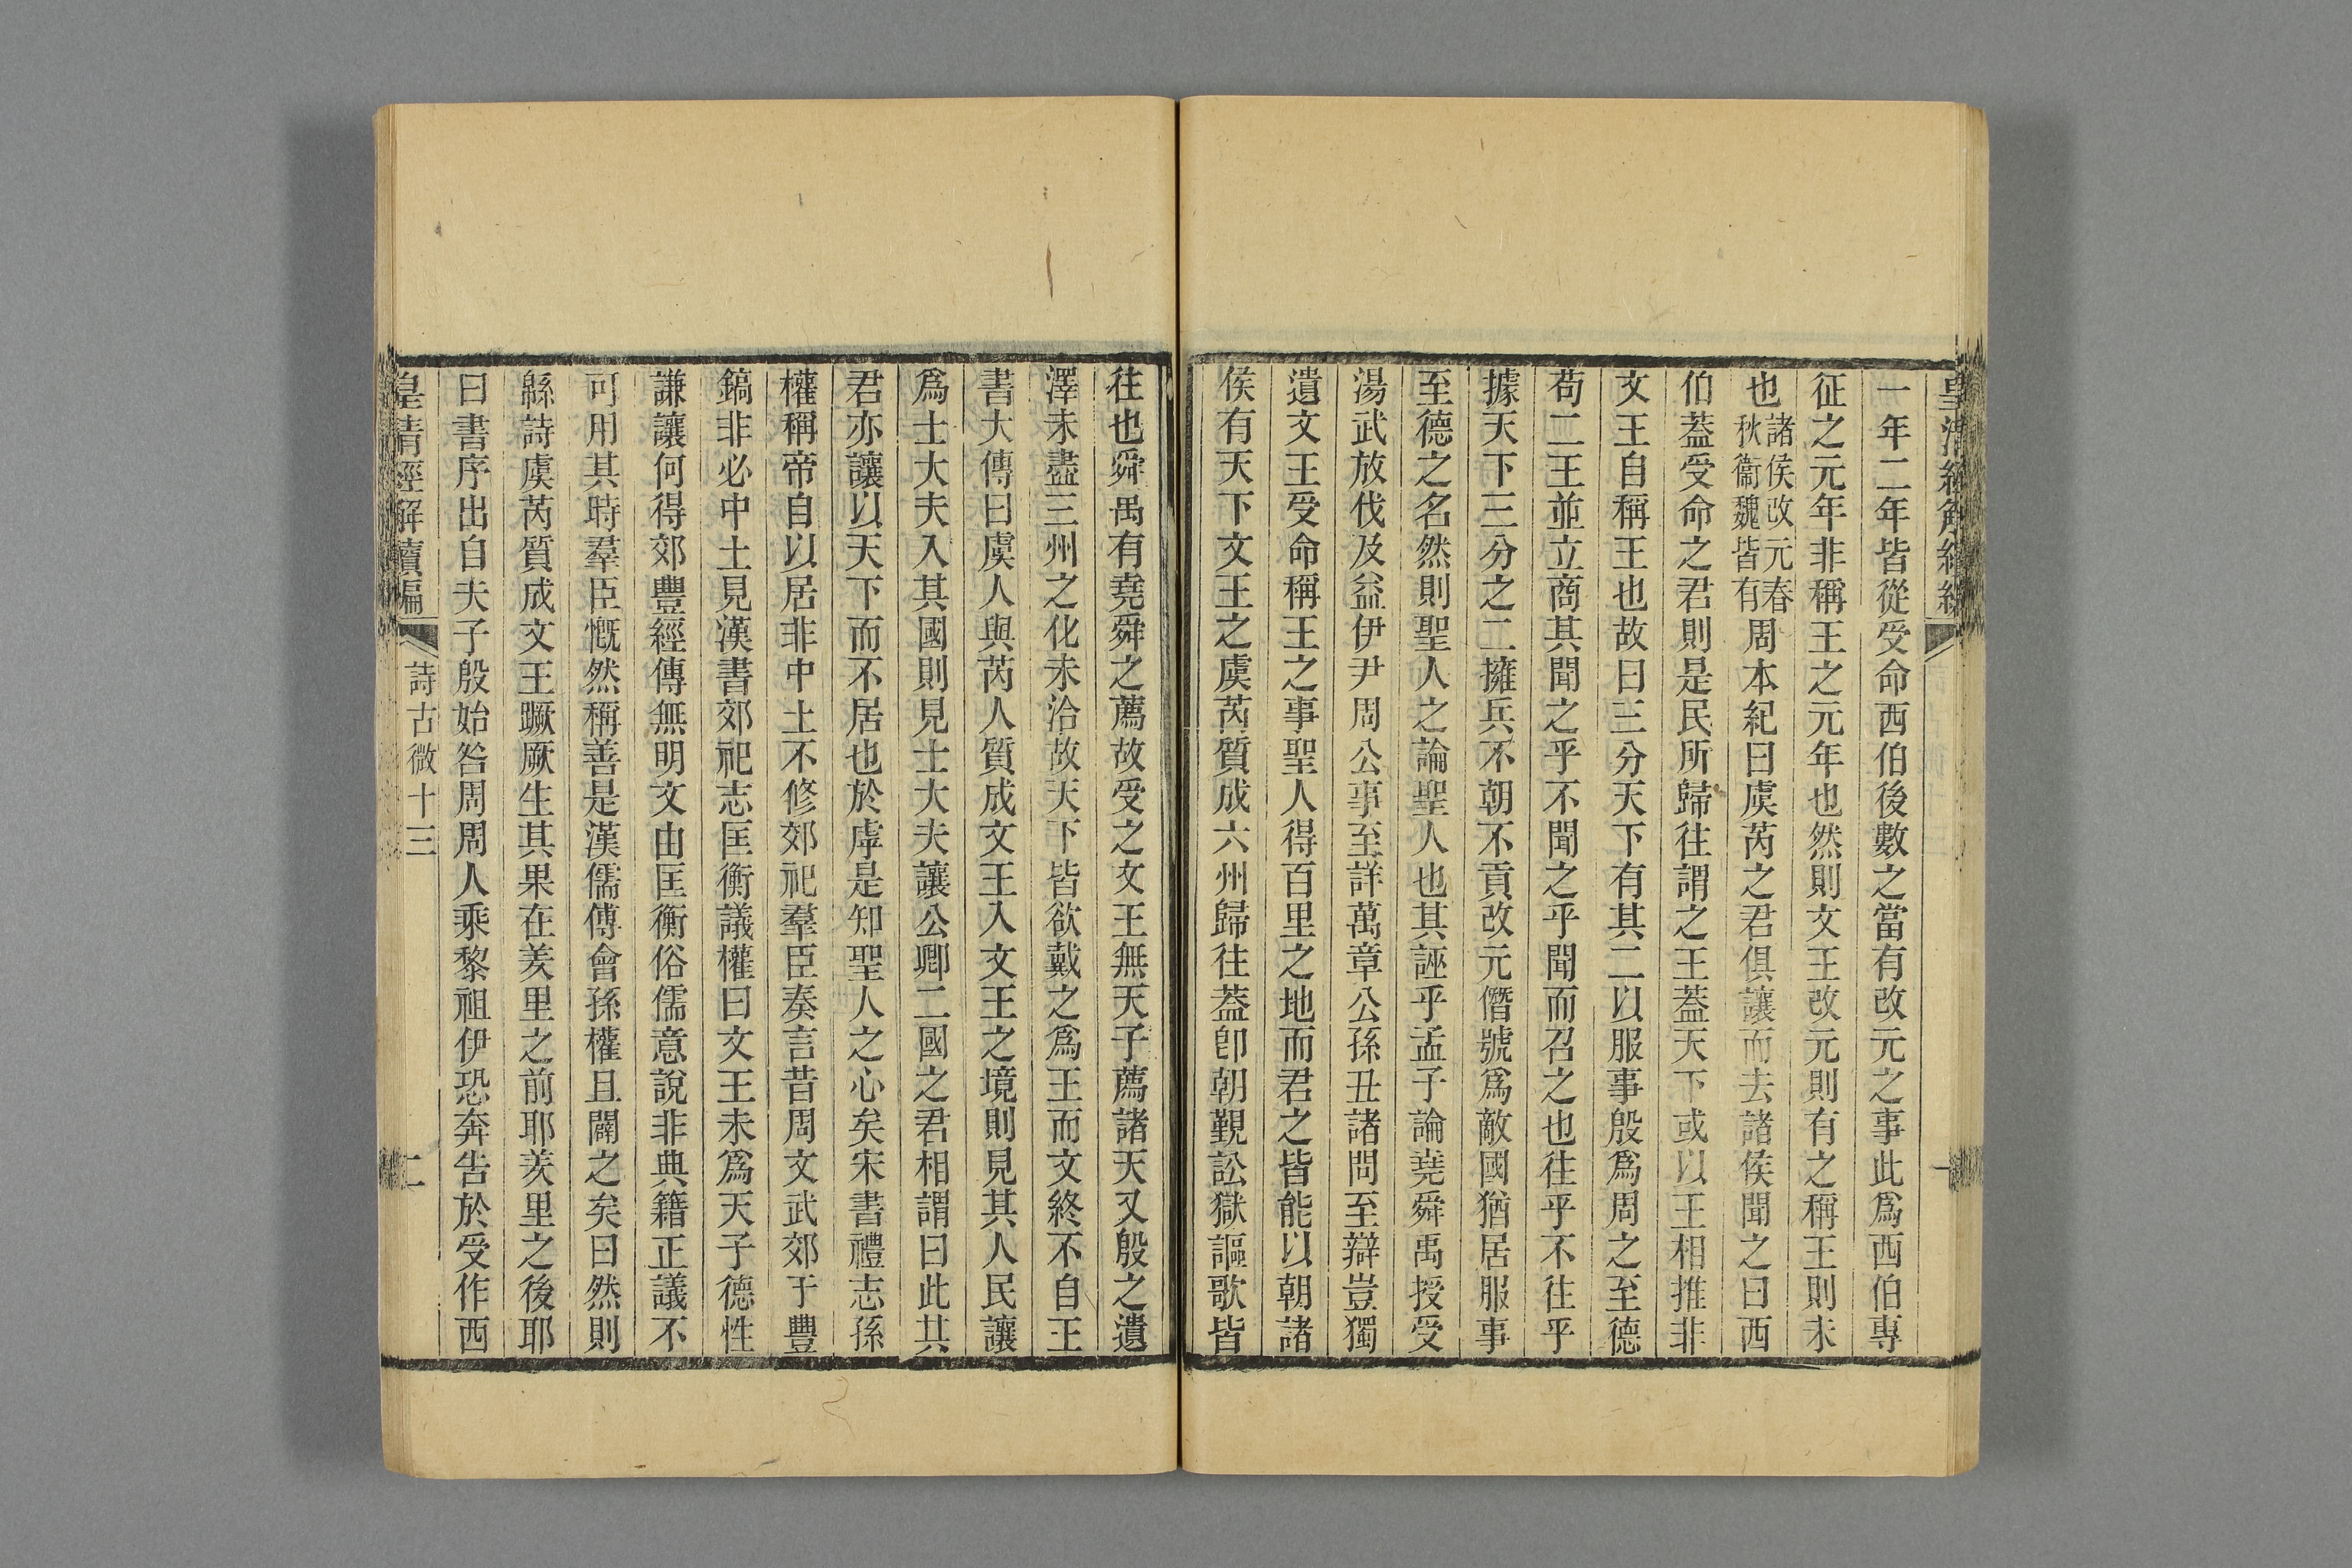 皇清經解續編
一年二年皆從受命西伯後數之當有改元之事此爲西伯專
征之元年非稱王之元年也然則文王改元則有之稱王則未
也諸侯改元春秋衞魏皆有周本紀曰虞芮之君俱讓而去諸侯聞之曰西
伯蓋受命之君則是民所歸往謂之王蓋天下或以王相推非
文王自稱王也故曰三分天下有其二以服事殷爲周之至德
苟二王並立商其聞之乎不聞之乎聞而召之也往乎不往乎
據天下三分之二擁兵不朝不貢改元僭號爲敵國猶居服事
至德之名然則聖人之論聖人也其誣乎孟子論堯舜禹授受
湯武放伐及益伊尹周公事至詳萬章公孫丑諸問至辯豈獨
遺文王受命稱王之事聖人得百里之地而君之皆能以朝諸
侯有天下文王之虞芮質成六州歸往蓋卽朝覲訟獄謳歌皆
往也舜禹有堯舜之薦故受之文王無天子薦諸天又殷之遺
澤未盡三州之化未洽故天下皆欲戴之爲王而文終不自王
書大傳曰虞人與芮人質成文王入文王之境則見其人民讓
爲士大夫入其國則見士大夫讓公卿二國之君相謂曰此其
君亦讓以天下而不居也於虖是知聖人之心矣宋書禮志孫
權稱帝自以居非中土不修郊祀羣臣奏言昔周文武郊于豐
鎬非必中土見漢書郊祀志匡衡議權曰文王未爲天子德性
謙讓何得郊豐經傳無明文由匡衡俗儒意說非典籍正議不
可用其時羣臣慨然稱善是漢儒傅會孫權且闢之矣曰然則
緜詩虞芮質成文王蹶厥生其果在羑里之前耶羑里之後耶
曰書序出自夫子殷始咎周周人乘黎祖伊恐奔告於受作西
皇清經解續編
詩古微十三
二